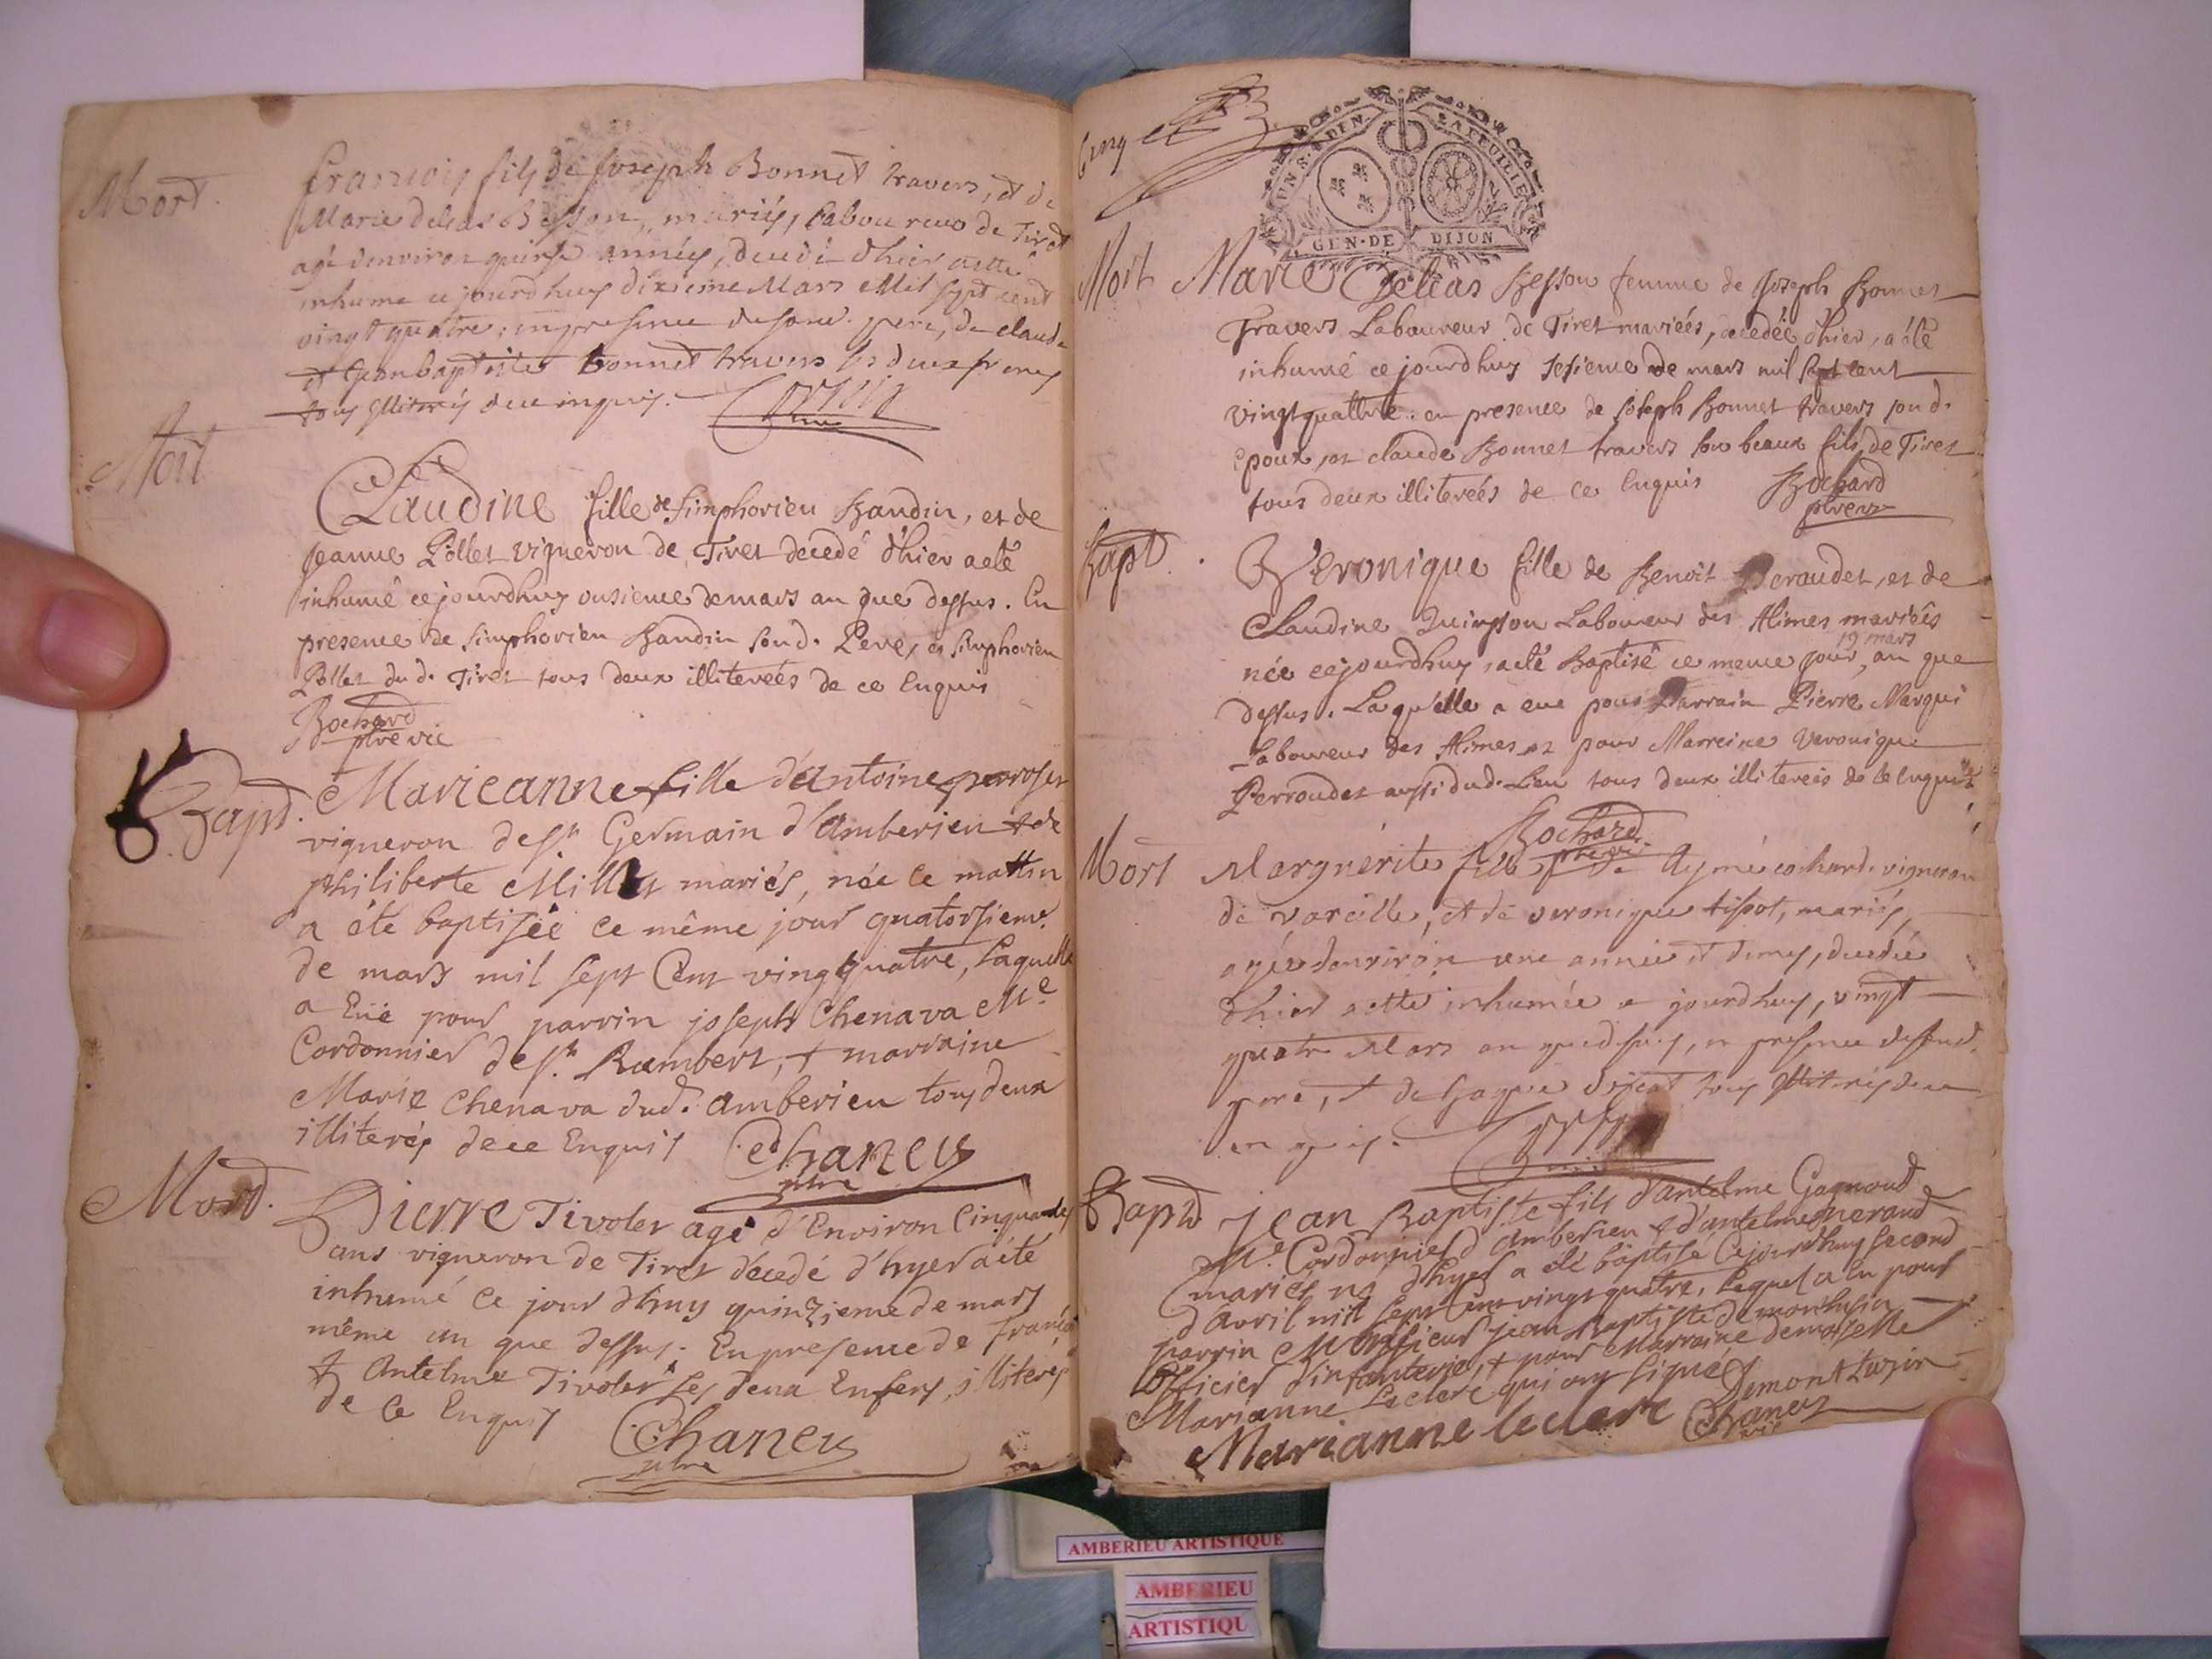 Mort.
françois fils de joseph Bonnet travers, et de
Marie delias Besson, mariés, laboureur de Tiret
agé denviron quinse années, decedé dhier aetté
inhumé cejourdhuy dixieme Mars Mil sept cent
vingt quatre; en presence de son d. pere, de claude
et jean baptiste bonnet travers ses deux freres
tous illiterés de ce enquis.
Mort
Claudine fille de Simphorien Baudin, et de
jeanne Pollet vigneron de Tiret decedé d'hier aeté
inhumé cejourdhuy onsieme demars an que dessus. En
presence de Simphorien Baudin son d. Pere, et Simphorien
Pollet du d. Tiret tous deux illitereés de ce Enquis
Bochard
ptre vic
Bapt.
Marieanne fille d'antoine perroset
vigneron de st Germain d'amberieu & de
philiberte Millet mariés, née ce mattin
a été baptisée ce même jour quatorsieme
de mars mil sept Cent vingt quatre, Laquelle
a Eüe pour parrin joseph Chenava Me
Cordonnier de st. Rambert, & marraine
Marie Chenava dud. amberieu tous deux
illiterés de ce Enquis Chaney
ptre
Mort.
Pierre Tivolet agé d'Environ Cinquante
ans vigneron de Tiret décedé d'hyer aété
inhumé Ce jour d'huy quinzieme de mars
même an que dessus. En presence de françois
& Antelme Tivolet ses deux Enfens, illiterés
de Ce Enquis
Chaney
ptre
Cinq
UN·S·8·DEN
LA FEUILLE
GEN·DE DIJON
Mort
Marie Delias Besson femme de Joseph Bonnet
Travers Laboureur de Tiret marieés, decedée d'hier, a été
inhumé ce jourdhuy sesieme de mars mil sept cent
vingt quattre: en presence de Joseph Bonnet travers son d.
epoux, et claude Bonnet travers son beaux fils, de Tiret
tous deux illitereés de ce Enquis Bochard
ptre vic
Bapt.
Veronique fille de Benoit Peraudet, et de
Claudine Quinson Laboureur des Alimes mariées
19 mars
née cejourdhuy, aeté Baptisé ce meme jour, an que
dessus. Laquelle a eue pour Parrain Pierre Marqui
Laboureur des Alimes et pour Marreine Veronique
Perroudet aussi dud. Lieu tous deux illitereés de ce enquis
Bochard
ptre vic
Mort
Marguérite fille de Aymé cochard. vigneron
de vareille, et de veronique tissot, mariés,
agée denviron une année et demy, decedée
dhier aetté inhumée ce jourdhuy, vingt
quatre Mars an que dessus, en presence de son d.
pere, et de tous illiterés de ce
enquis.
Bapt
jean Baptiste fils d'antelme Gagnoud
Me. Cordonnier d'amberieu & d'antelme nerand
mariés né d'hyer a été baptisé Cejourdhuy second
d'avril mil sept Cent vingt quatre, Lequel a Eu pour
parrin Monsieur jean Baptiste demonthusin
officier d'infanterie, & pour Marraine demoiselle
Marianne Leclerc qui ont signé
Marianne leclerc
Chaney
vic
AMBERIEU ARTISTIQUE
AMBERIEU
ARTISTIQU